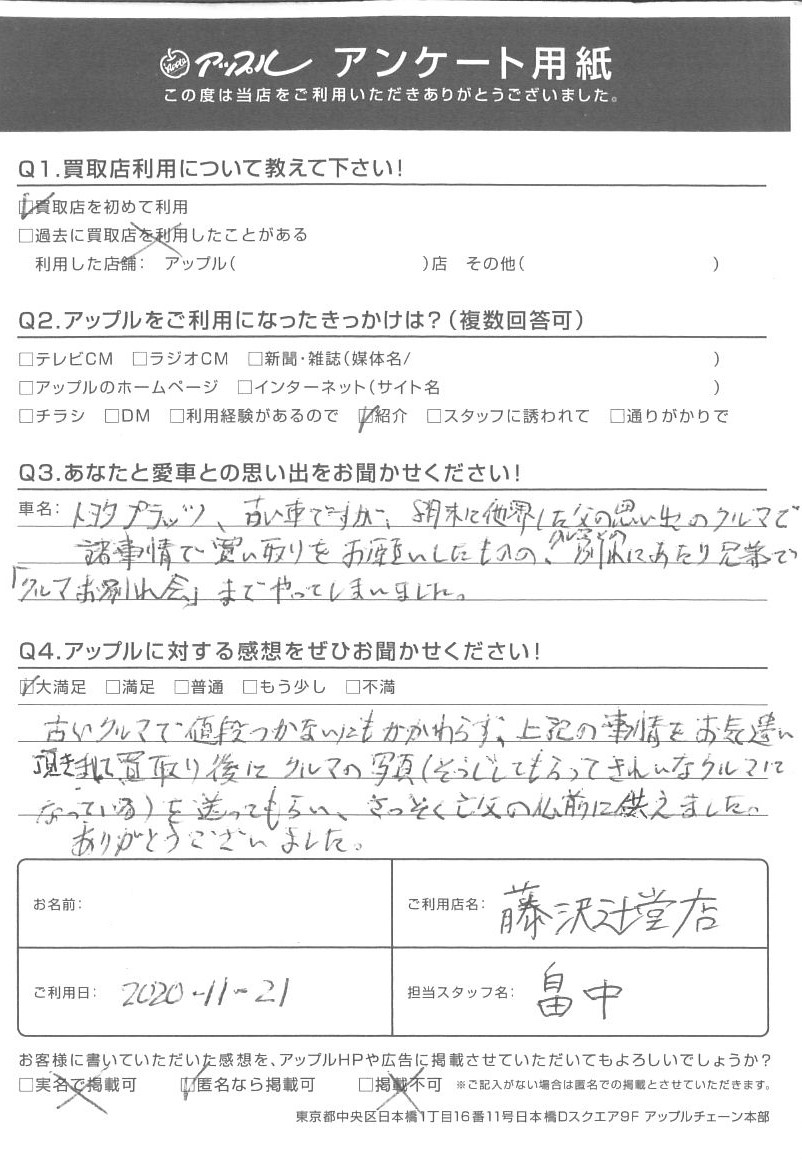 アップル アンケート用紙
この度は当店をご利用いただきありがとうございました。
Q1.買取店利用について教えて下さい!
□買取店を初めて利用
□過去に買取店を利用したことがある
利用した店舗: アップル( )店 その他( )
Q2.アップルをご利用になったきっかけは?(複数回答可)
□テレビCM □ラジオCM □新聞・雑誌(媒体名/ )
□アップルのホームページ □インターネット(サイト名 )
□チラシ □DM □利用経験があるので □紹介 □スタッフに誘われて □通りがかりで
Q3.あなたと愛車との思い出をお聞かせください!
車名: トヨタプラッツ、古い車ですが、月末に他界した父の思い出のクルマで
諸事情で買い取りをお願いしたものの、クルマとの別れにあたり兄弟で
「クルマお別れ会」までやってしまいました。
Q4.アップルに対する感想をぜひお聞かせください!
□大満足 □満足 □普通 □もう少し □不満
古いクルマで値段つかないにもかかわらず、上記の事情をお気遣い
頂きまして買取り後にクルマの写真(そうじしてもらってきれいなクルマに
なっている)を送ってもらい、さっそく亡父の仏前に供えました。
ありがとうございました。
お名前:
ご利用店名: 藤沢辻堂店
ご利用日: 2020-11-21
担当スタッフ名: 畠中
お客様に書いていただいた感想を、アップルHPや広告に掲載させていただいてもよろしいでしょうか?
□実名で掲載可 □匿名なら掲載可 □掲載不可 ※ご記入がない場合は匿名での掲載とさせていただきます。
東京都中央区日本橋1丁目16番11号日本橋Dスクエア9F アップルチェーン本部